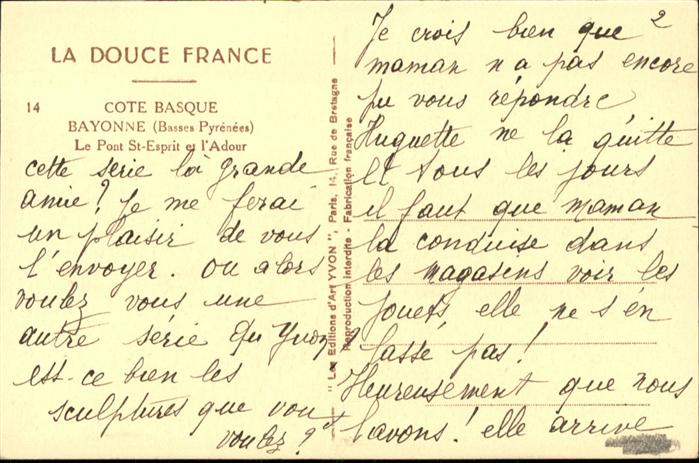 LA DOUCE FRANCE
14 COTE BASQUE
BAYONNE (Basses Pyrénées)
Le Pont St-Esprit et l'Adour
cette série là grande
amie? Je me ferai
un plaisir de vous
l'envoyer. Ou alors
voulez vous une
autre série du Yvon?
est-ce bien les
sculptures que vous
voulez?
"Les Editions d'Art YVON", Paris, 14, Rue de Bretagne
Reproduction interdite - Fabrication française
2
Je crois bien que
maman n a pas encore
pu vous répondre
Huguette ne la quitte
et tous les jours
il faut que maman
la conduise dans
les magasins voir les
jouets, elle ne s'en
lasse pas!
Heureusement que nous
l'avons! elle arrive